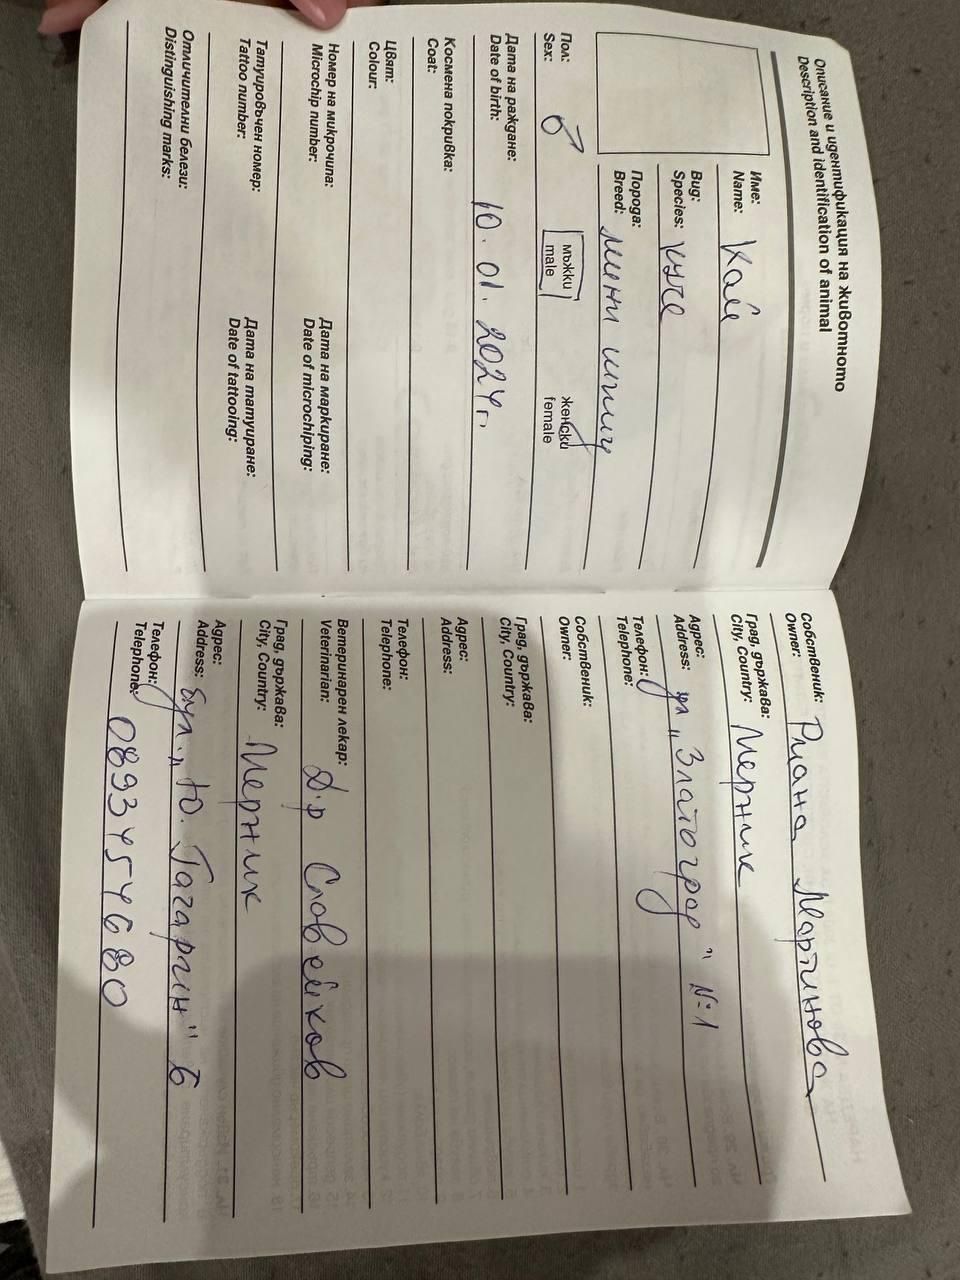 Описание и идентификация на животното
Description and identification of animal
Име:
Name: Кай
Вид:
Species: куче
Порода:
Breed: мини шпиц
Пол:
Sex: ♂ мъжки женски
male female
Дата на раждане:
Date of birth: 10.01.2024г.
Космена покривка:
Coat:
Цвят:
Colour:
Номер на микрочипа: Дата на маркиране:
Microchip number: Date of microchiping:
Татуировъчен номер: Дата на татуиране:
Tattoo number: Date of tattooing:
Отличителни белези:
Distinguishing marks:
Собственик:
Owner: Риана Мартинова
Град, държава:
City, Country: Перник
Адрес:
Address: ул „Златоград" №1
Телефон:
Telephone:
Собственик:
Owner:
Град, държава:
City, Country:
Адрес:
Address:
Телефон:
Telephone:
Ветеринарен лекар:
Veterinarian: Д-р Славейков
Град, държава:
City, Country: Перник
Адрес:
Address: бул. „Ю. Гагарин" 6
Телефон:
Telephone: 0893454680